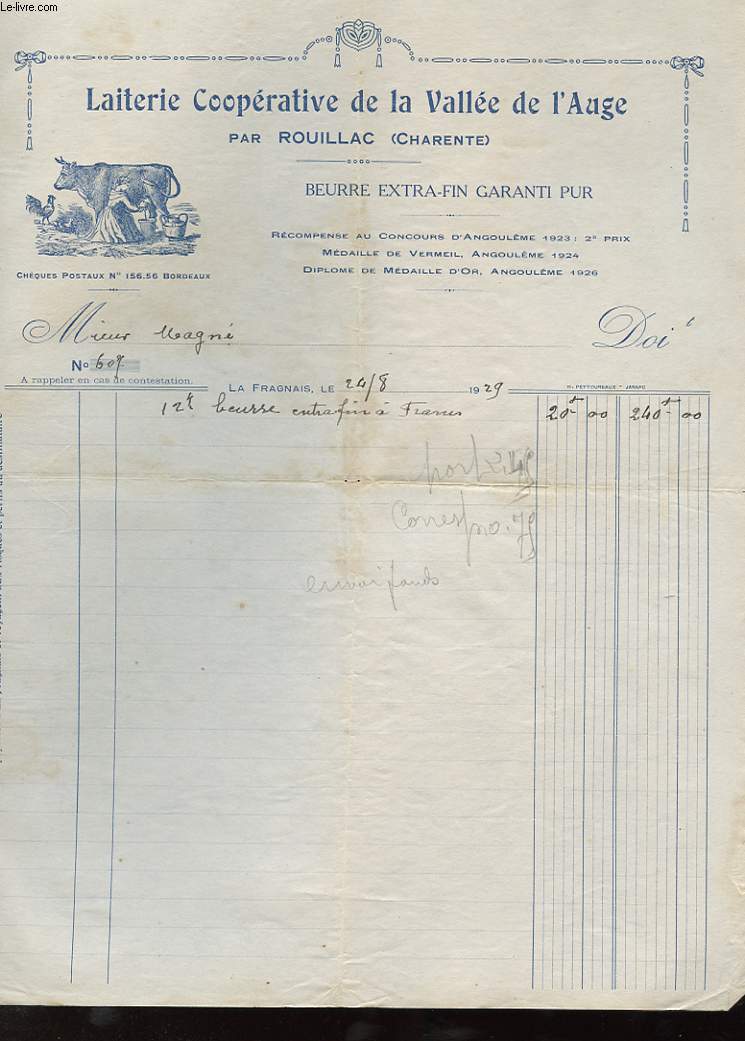 Le-livre.com
Laiterie Coopérative de la Vallée de l'Auge
PAR ROUILLAC (CHARENTE)
BEURRE EXTRA-FIN GARANTI PUR
RÉCOMPENSE AU CONCOURS D'ANGOULÊME 1923 : 2e PRIX
MÉDAILLE DE VERMEIL, ANGOULÊME 1924
DIPLOME DE MÉDAILLE D'OR, ANGOULÊME 1926
CHÈQUES POSTAUX N° 156.56 BORDEAUX
Mieur Magné
Doit
No 609
A rappeler en cas de contestation.
LA FRAGNAIS, LE 24/8 1929
12k beurre extra fin à Francs 20f 00 240f 00
port 2.45
Corresp 0.75
envoi fonds